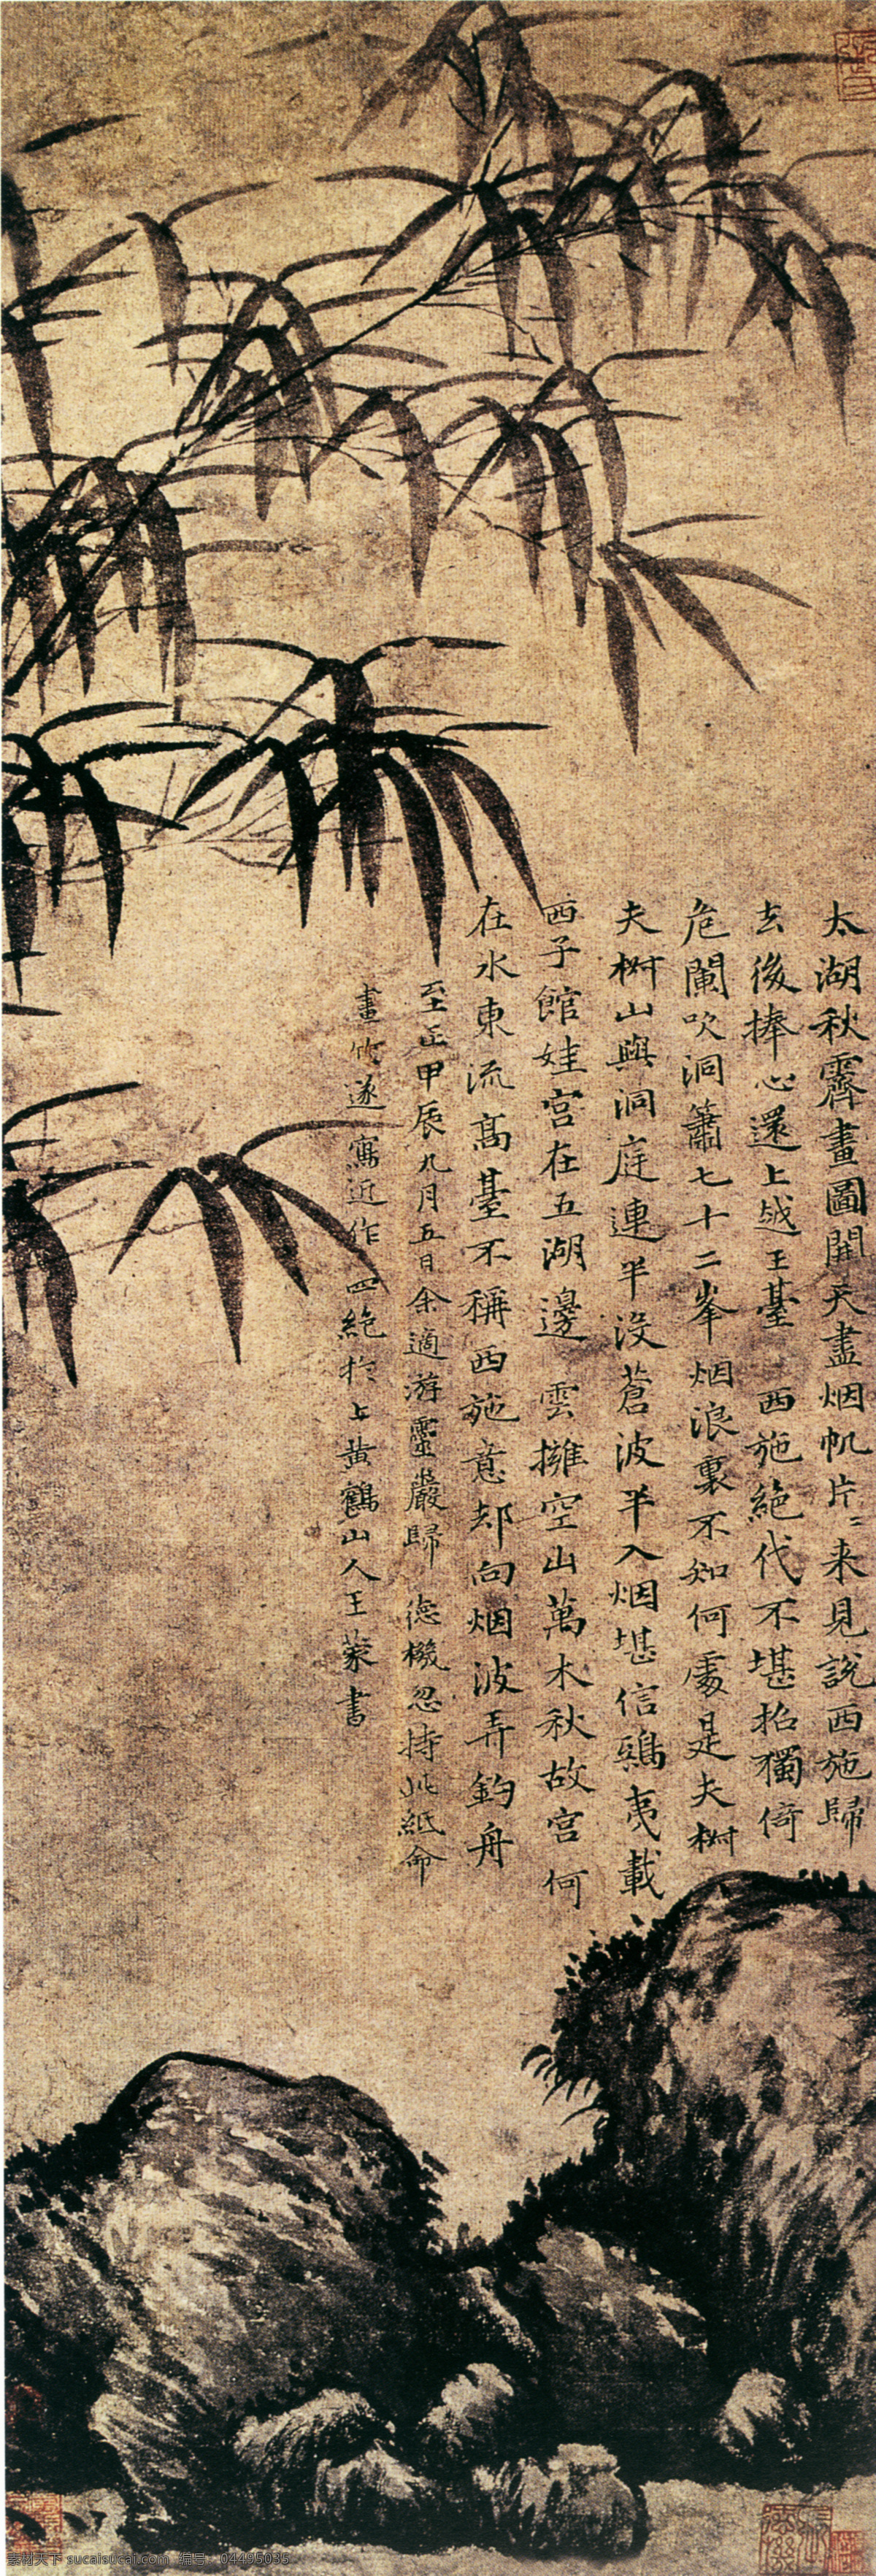 太湖秋霽畫圖開天盡烟帆片〻来見說西施歸
去後捧心還上越王臺 西施絕代不堪招獨倚
危闌吹洞簫七十二峯烟浪裏不知何處是夫椒
夫椒山與洞庭連半没蒼波半入烟堪信鴟夷載
西子館娃宫在五湖邊 雲擁空山萬木秋故宫何
在水東流髙臺不稱西施意却向烟波弄釣舟
至正甲辰九月五日余適游靈巖歸 德機忽持此紙命
畫竹遂寫近作四絶扵上黄鶴山人王蒙書
素材天下 sucaisucai.com 编号：04495035